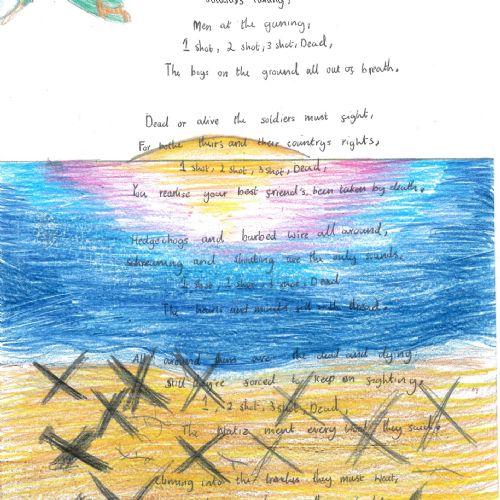 Men at the gunning,
1 shot, 2 shot, 3 shot, Dead,
The boys on the ground all out of breath.
Dead or alive the soldiers must fight,
For bothe thiers and their countrys rights,
1 shot, 2 shot, 3 shot, Dead,
You realise your best friend's been taken by death.
Hedgehogs and barbed wire all around,
screaming and shooting are the only sounds.
1 shot, 2 shot, 3 shot, Dead
The hearts and minds fill with
All around them were the dead and dying,
Still they're forced to keep on fighting,
1, 2 shot, 3 shot, Dead,
The ment every word they said.
Coming into the trenches they must